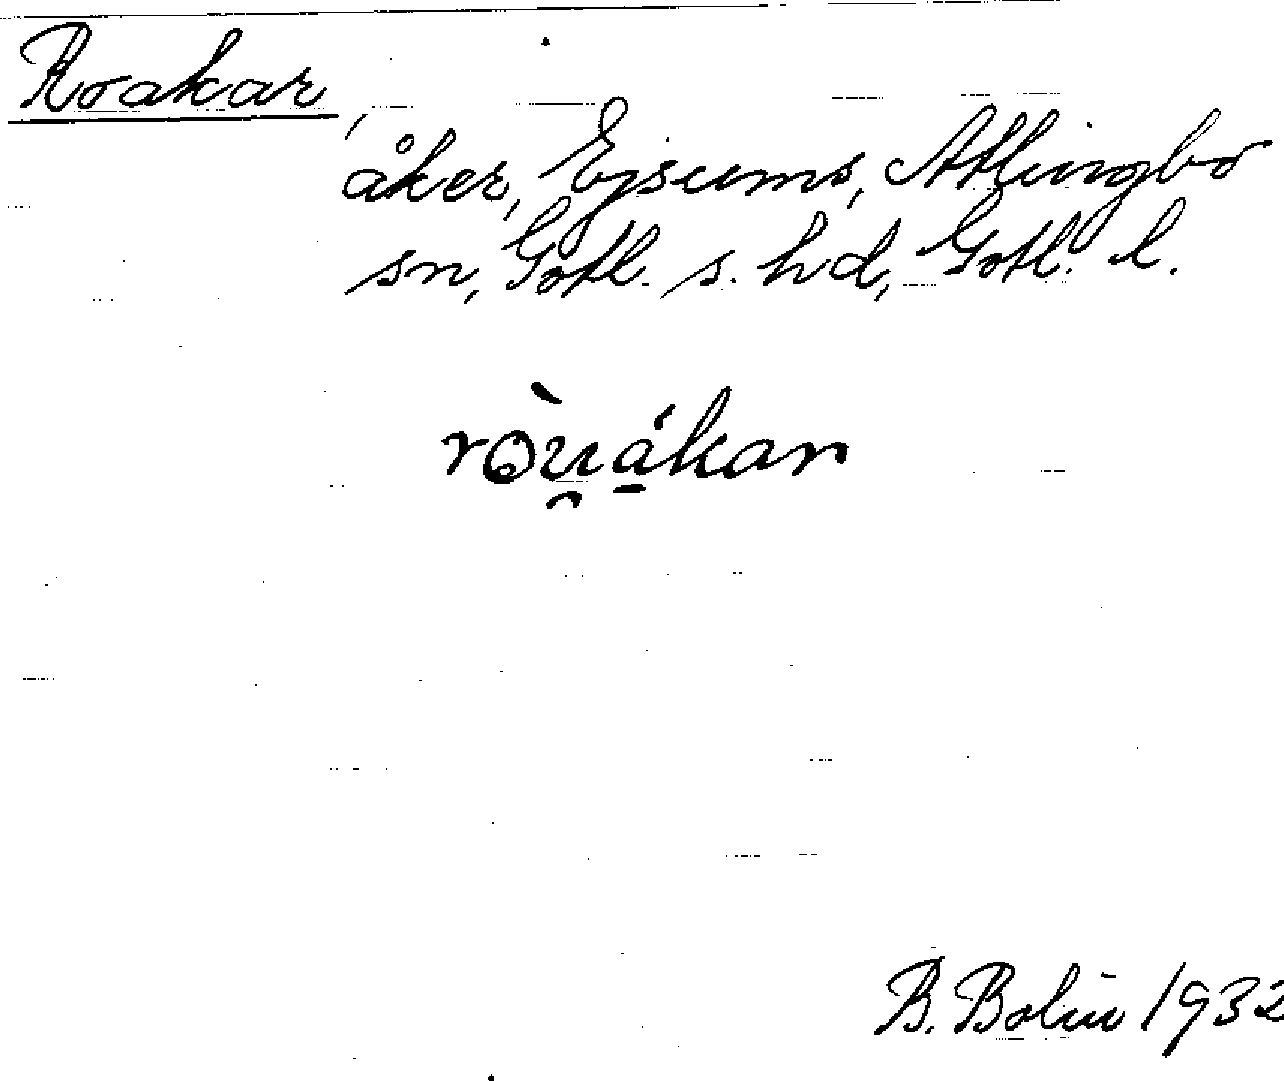 Roakar,
åker, Ejsums, Atlingbo
sn, Gotl. s. hd, Gotl. l.
ròu̯á̱kar
B. Bolin 1932